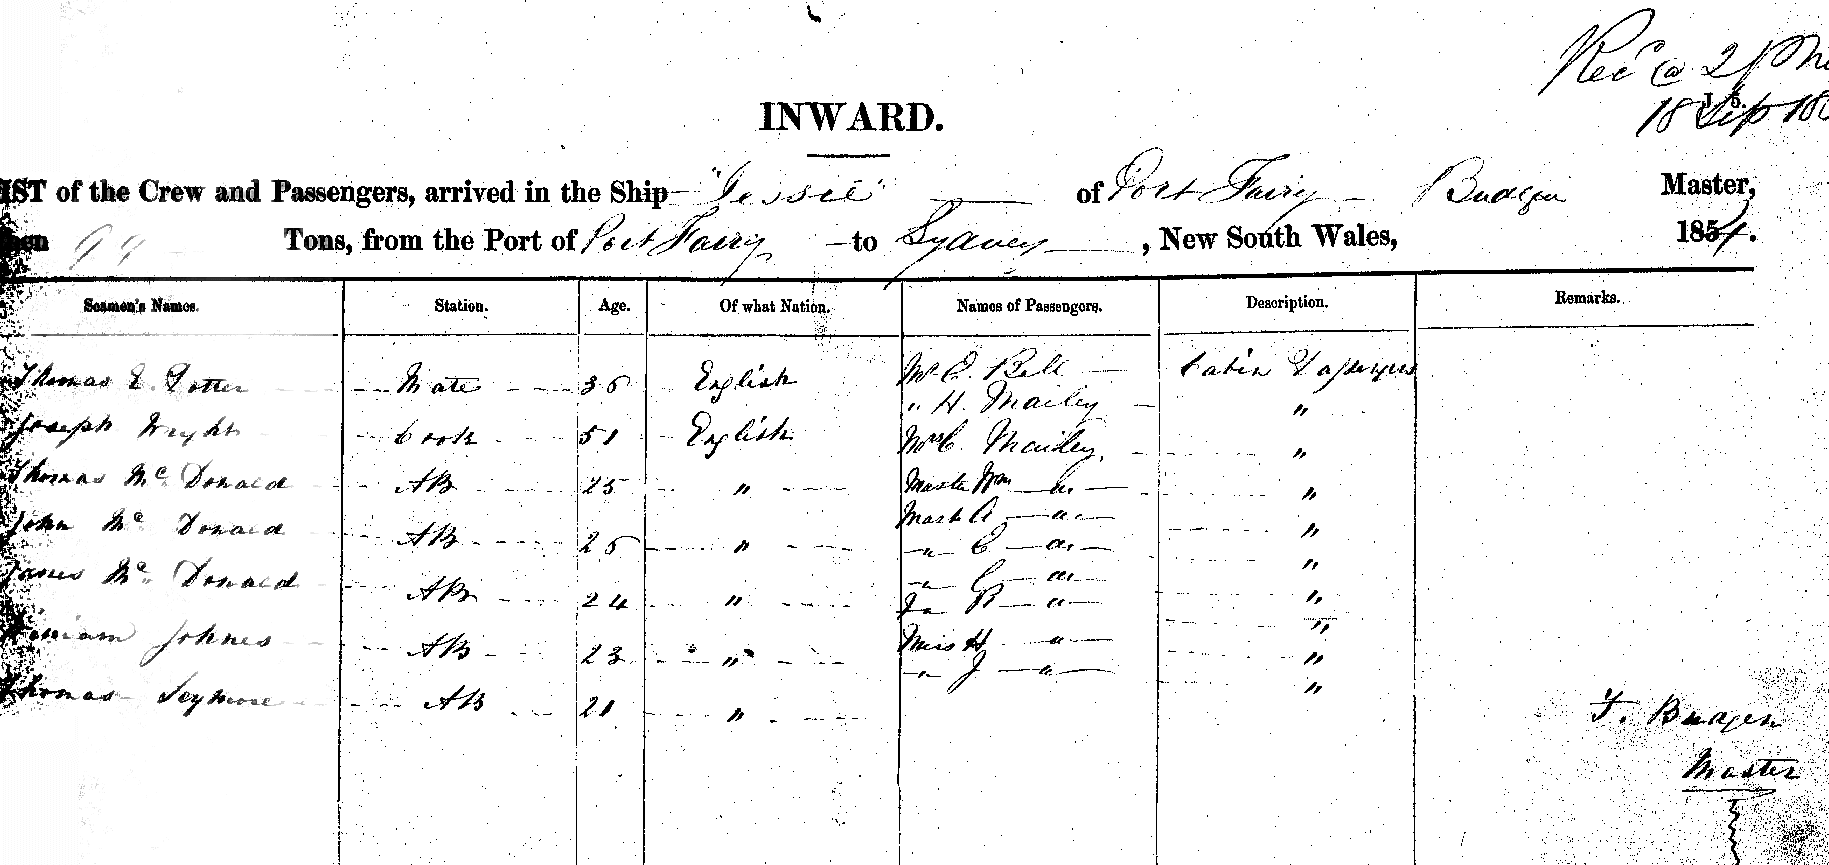 Rec'd @ 2 PM
J 5.
18 Sep 18
INWARD.
IST of the Crew and Passengers, arrived in the Ship "Jessie" of Port Fairy Budgen Master,
Tons, from the Port of Port Fairy to Sydney, New South Wales, 1854.
Seamen's Names. Station. Age. Of what Nation. Names of Passengers. Description. Remarks.
Thomas E. Potter Mate 36 English Mr C. Bell Cabin Passengers
" H. Mailey "
Joseph Wright Cook 51 English Mrs C Mailey "
Thomas Mc Donald AB 25 " Master Wm do "
John Mc Donald AB 25 " Mast A do "
" C do "
James Mc Donald AB 24 " " G do "
" R do "
William Johnes AB 23 " Miss H do "
" J do "
Thomas Seymore AB 21 "
T. Budgen
Master